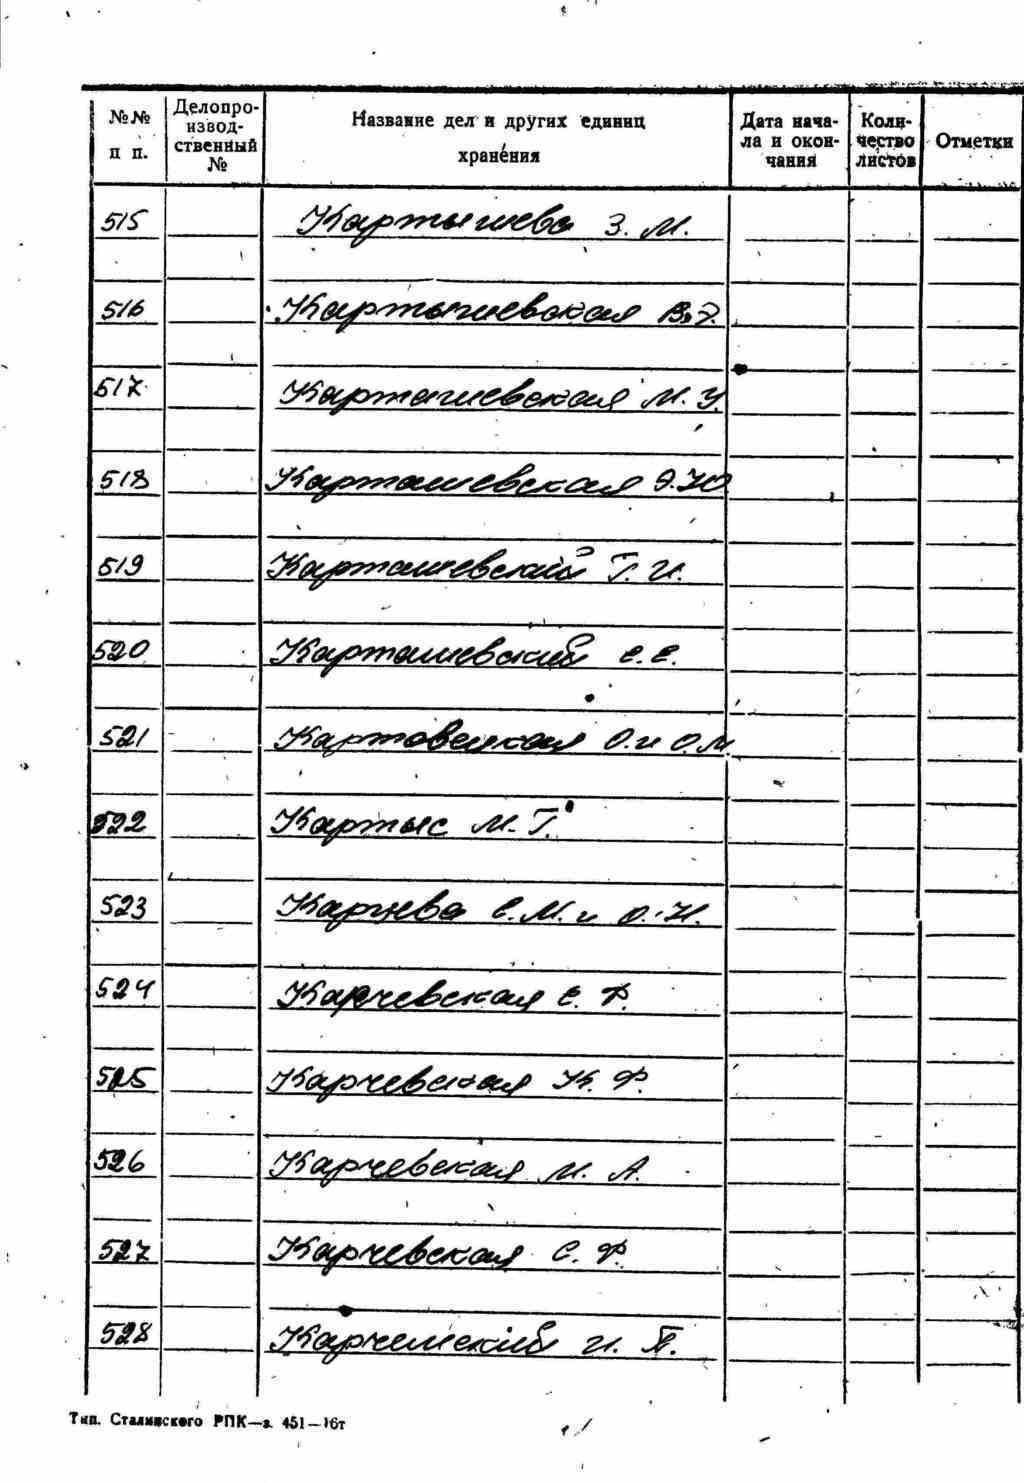 №№ п п.
Делопроизводственный №
Название дел и других единиц хранения
Дата начала и окончания
Количество листов
Отметки
515 Картышева З. М.
516 Картышевская В. Э.
517 Карташевская М. У.
518 Карташевская Э. Ю
519 Карташевский Г. И.
520 Карташевский Е. Е.
521 Картовецкая О. и О. М.
522 Картыс М. Г.
523 Карцева Е. М. и О. Н.
524 Карчевская Е. Ф.
525 Карчевская К. Ф.
526 Карчевская М. А.
527 Карчевская С. Ф.
528 Карчемский И. П.
Тип. Сталинского РПК—з. 451—16т